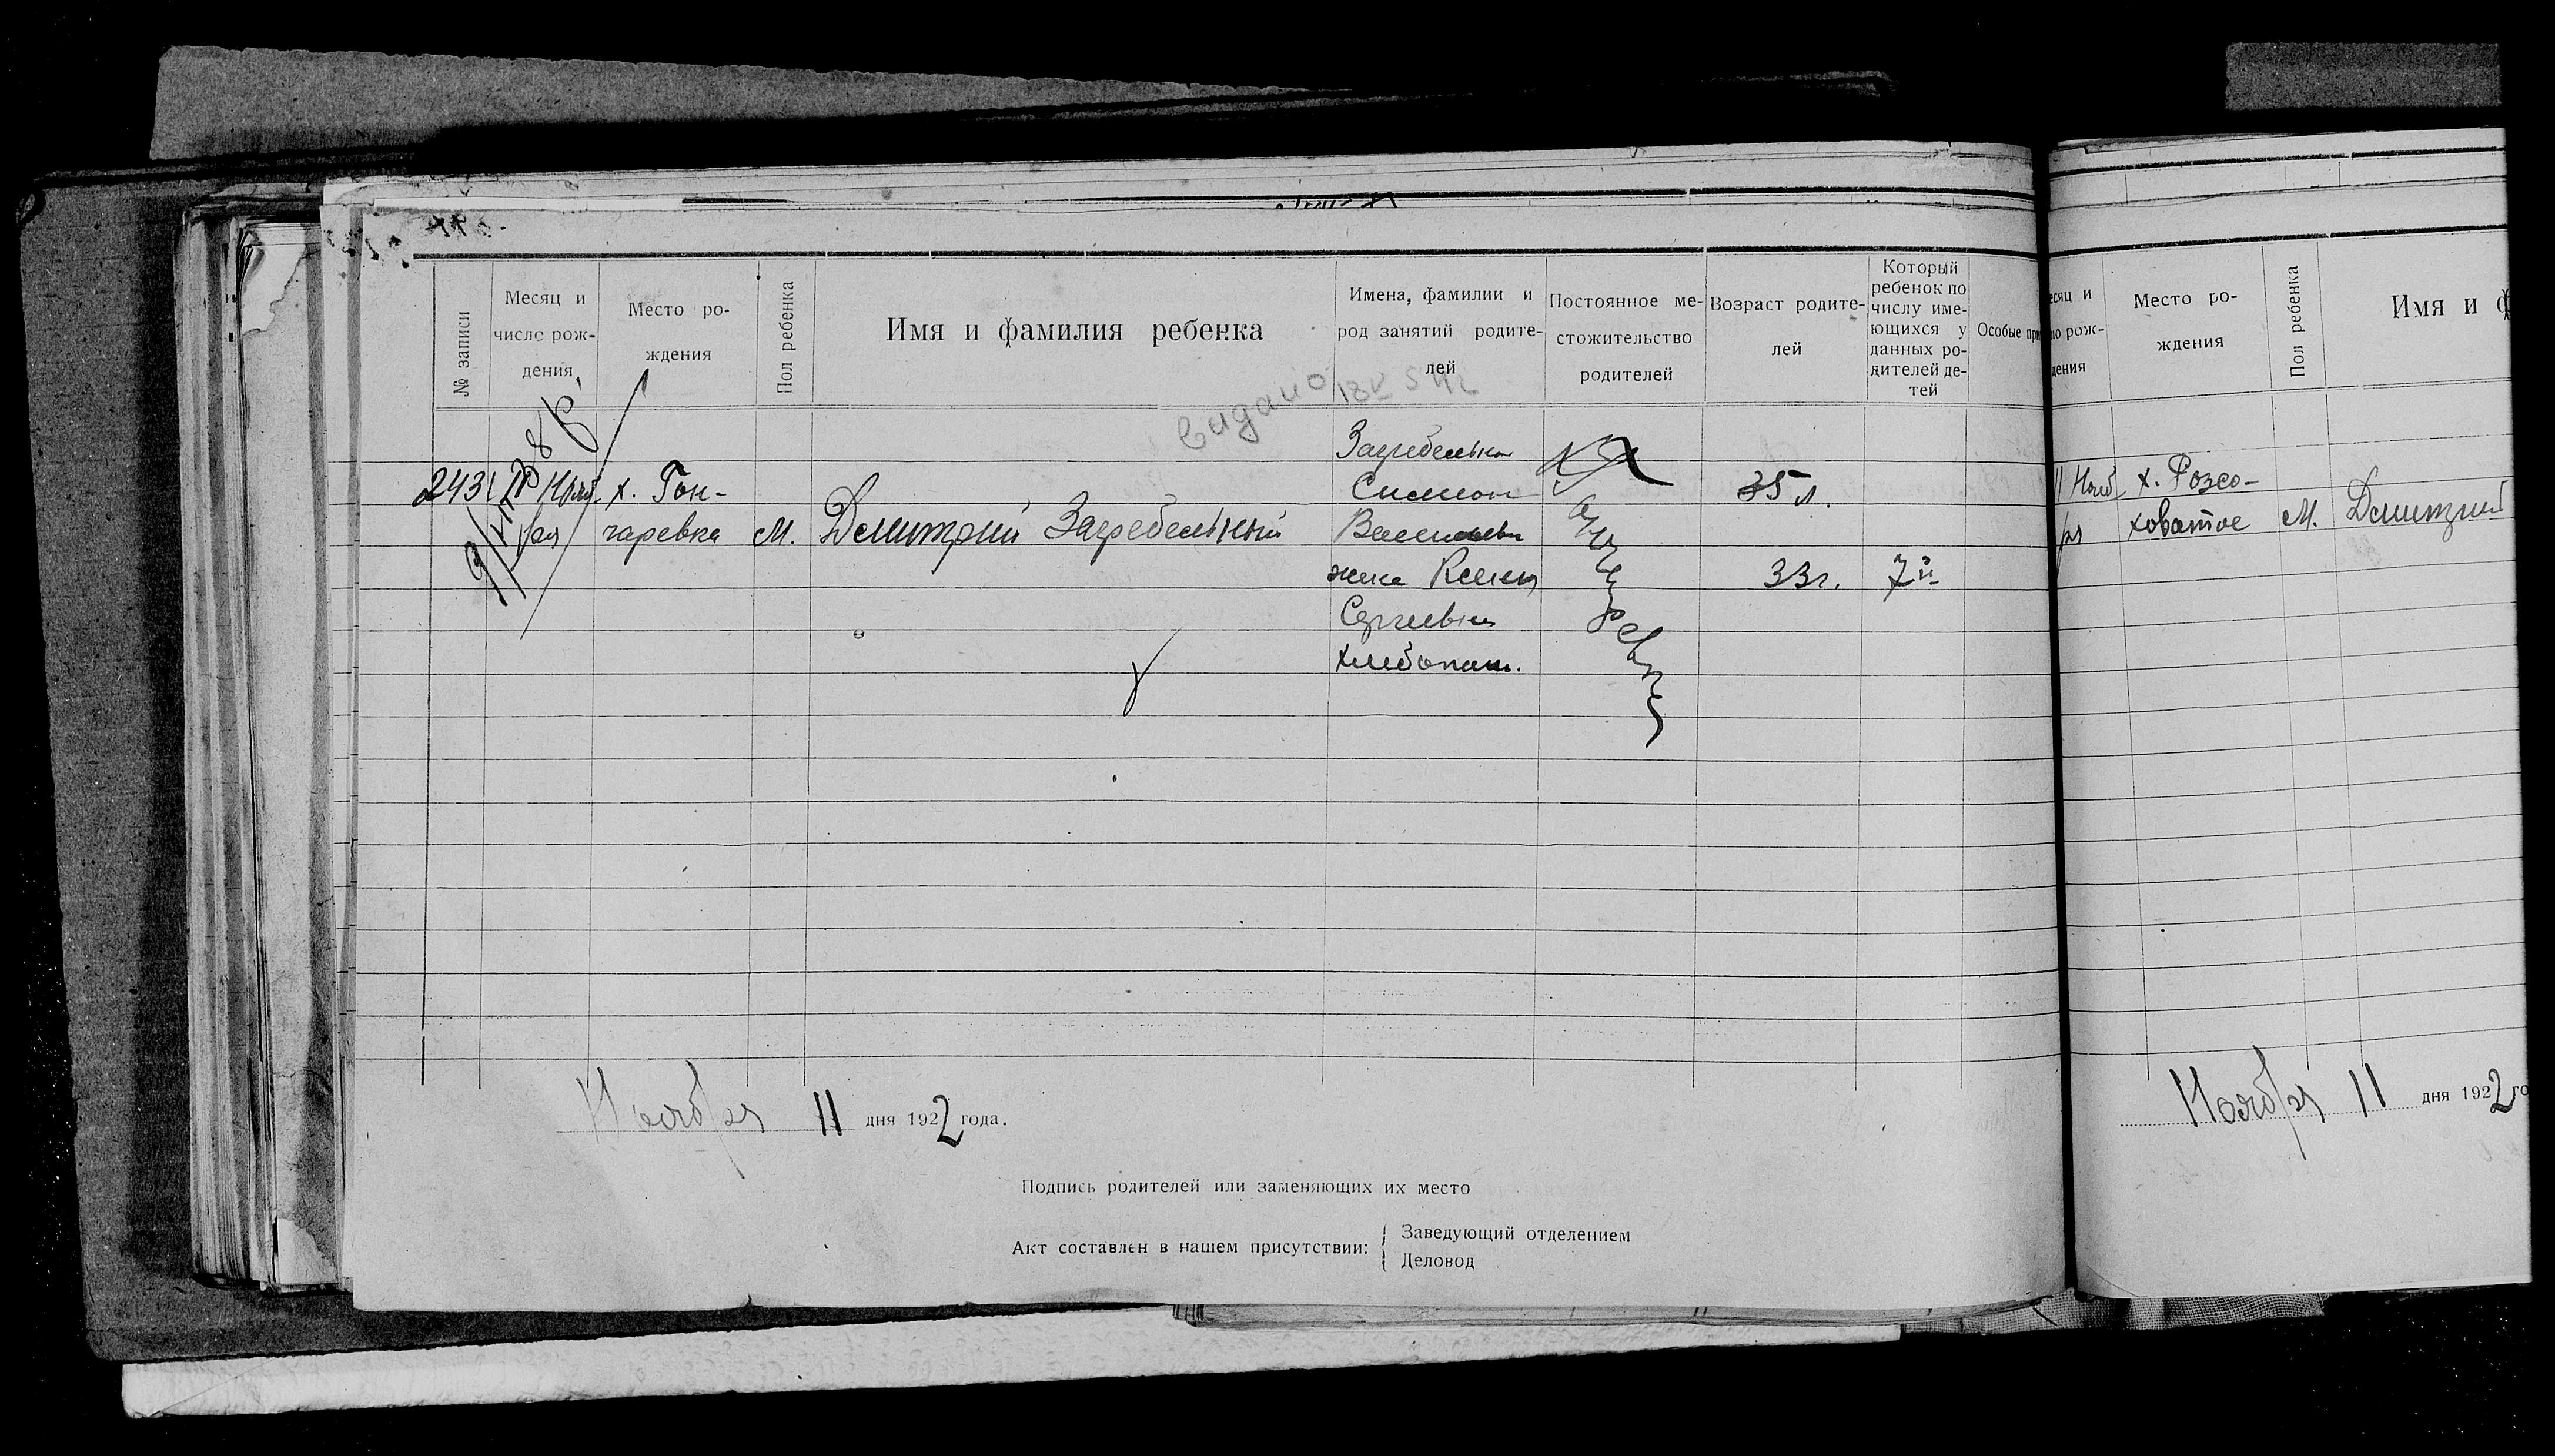 № записи
Месяц и
число рож-
дения
Место ро-
ждения
Пол ребенка
Имя и фамилия ребенка
Имена, фамилии и
род занятий родите-
лей
Постоянное ме-
стожительство
родителей
Возраст родите-
лей
Который
ребенок по
числу име-
ющихся у
данных ро-
дителей де-
тей
Особые при
видано
243
Нояб-
ря
х. Гон-
чаревка
М.
Дмитрий Загребельный
Симеон
жена Ксения
Сергиевна
хлебопаш.
35 л.
33 г.
7й
Ноября 11 дня 1922 года.
Подпись родителей или заменяющих их место
Акт составлен в нашем присутствии:
Заведующий отделением
Деловод
есяц и
ло рож-
дения
Место ро-
ждения
Пол ребенка
Имя и ф
11 Нояб-
ря
х. Розсо-
ховатое
М.
Дмитрий
Ноября 11 дня 1922 го